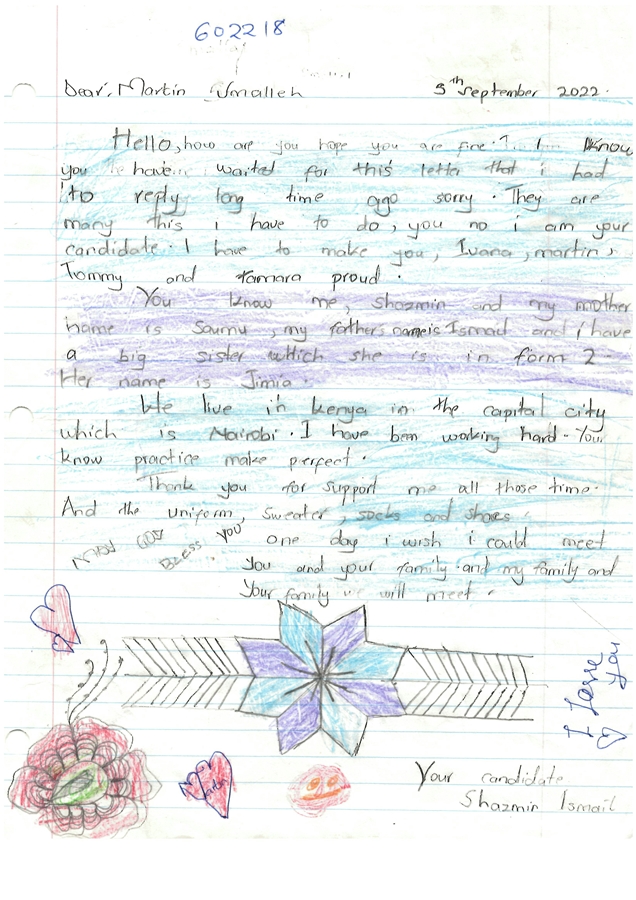 602218
Dear, Martin Smalleh 5th September 2022.
Hello, how are you hope you are fine? I know
you have waited for this letter that i had
to reply long time ago sorry. They are
many this i have to do, you no i am your
candidate. I have to make you, Ivana, martin,
Tommy and tamara proud.
You know me, shazmin and my mother
name is Saumu, my father name is Ismail and i have
a big sister which she is in form 2.
Her name is Jimia.
We live in kenya in the capital city
which is Nairobi. I have been working hard. You
know practice make perfect.
Thank you for support me all those time.
And the uniform, sweater, socks and shoes.
May God Bless you, one day i wish i could meet
you and your family and my family and
your family we will meet.
I love you
Your candidate
Shazmin Ismail